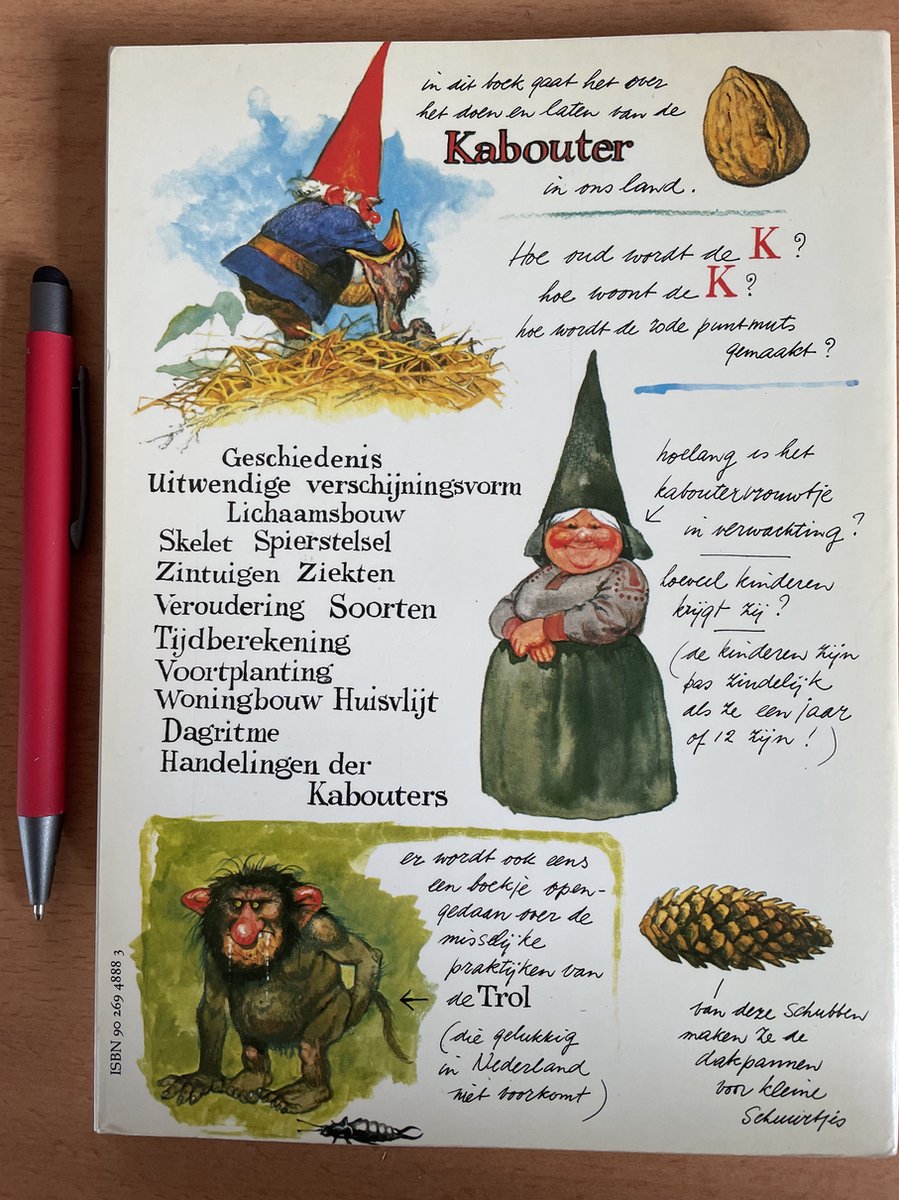 in dit boek gaat het over
het doen en laten van de
Kabouter
in ons land.
Hoe oud wordt de K?
hoe woont de K?
hoe wordt de rode puntmuts
gemaakt?
hoelang is het
kaboutervrouwtje
in verwachting?
hoeveel kinderen
krijgt zij?
(de kinderen zijn
pas zindelijk
als ze een jaar
of 12 zijn!)
Geschiedenis
Uitwendige verschijningsvorm
Lichaamsbouw
Skelet Spierstelsel
Zintuigen Ziekten
Veroudering Soorten
Tijdberekening
Voortplanting
Woningbouw Huisvlijt
Dagritme
Handelingen der
Kabouters
er wordt ook eens
een boekje open-
gedaan over de
misselijke
praktijken van
de Trol
(die gelukkig
in Nederland
niet voorkomt)
van deze schubben
maken ze de
dakpannen
voor kleine
schuurtjes
ISBN 90 269 4888 3